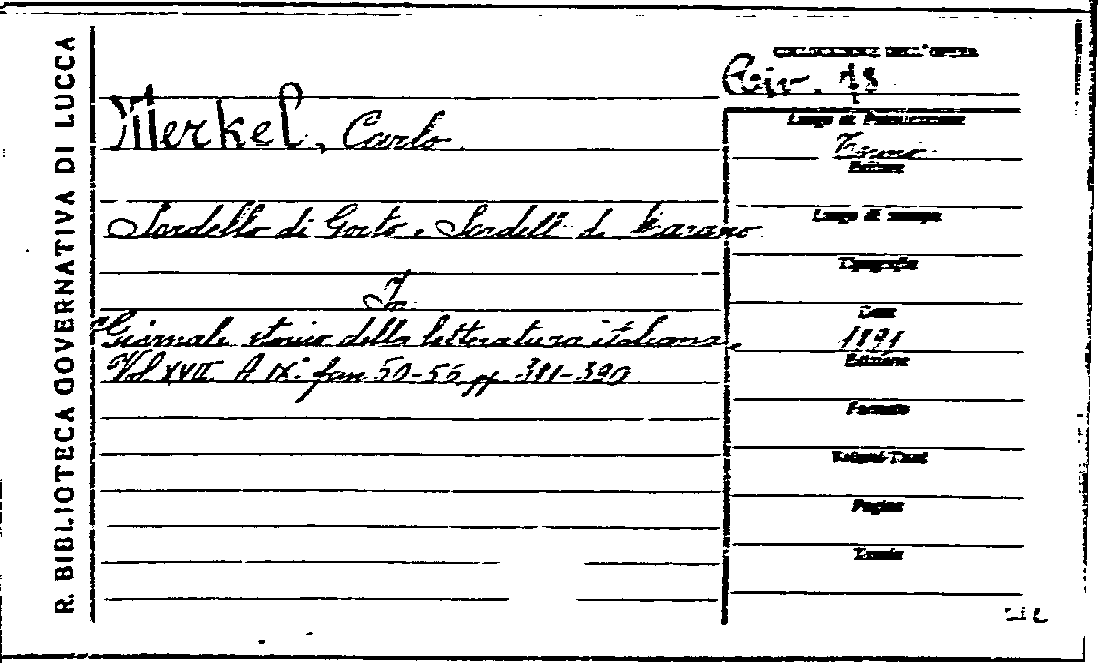 R. BIBLIOTECA GOVERNATIVA DI LUCCA
Riv. 18
Merkel, Carlo
Sordello di Goito e Sordell di Marano
In
Giornale storico della letteratura italiana.
Vol XVII. A IX. fasc 50-56 pp 381-390
Luogo di Pubblicazione
Torino
Editore
Luogo di stampa
Tipografia
Data
1891
Edizione
Formato
Volumi-Tomi
Pagine
Tavole